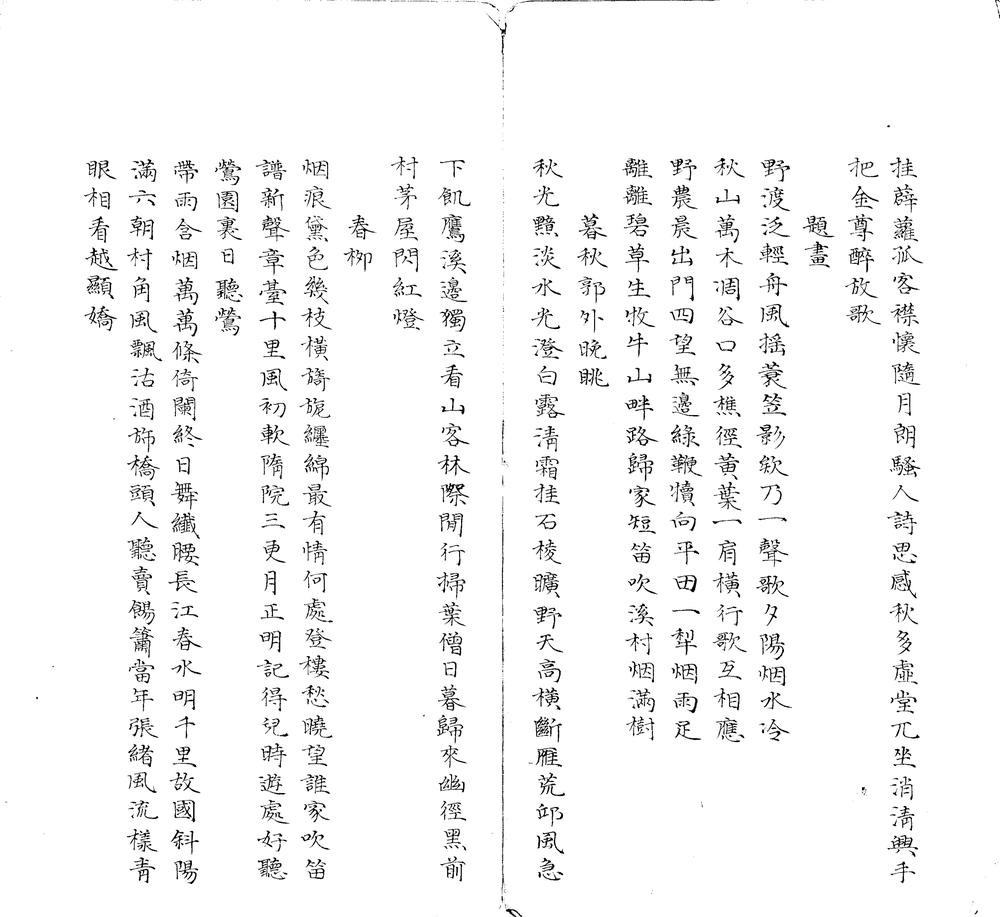 挂薜蘿孤客襟懷隨月朗騷人詩思感秋多虛堂兀坐消清興手
把金尊醉放歌
題畫
野渡泛輕舟風摇蓑笠影欸乃一聲歌夕陽烟水冷
秋山萬木凋谷口多樵徑黃葉一肩橫行歌互相應
野農晨出門四望無邊綠鞭犢向平田一犁烟雨足
離離碧草生牧牛山畔路歸家短笛吹溪村烟滿樹
暮秋郭外晚眺
秋光黯淡水光澄白露清霜挂石棱曠野天高橫斷雁荒邱風急
下飢鷹溪邊獨立看山客林際閒行掃葉僧日暮歸來幽徑黑前
村茅屋閃紅燈
春柳
烟痕黛色幾枝橫旖旎纏綿最有情何處登樓愁曉望誰家吹笛
譜新聲章臺十里風初軟隋院三更月正明記得兒時遊處好聽
鶯園裏日聽鶯
帶雨含烟萬萬條倚闌終日舞纖腰長江春水明千里故國斜陽
滿六朝村角風飄沽酒斾橋頭人聽賣餳簫當年張緒風流樣靑
眼相看越顯嬌